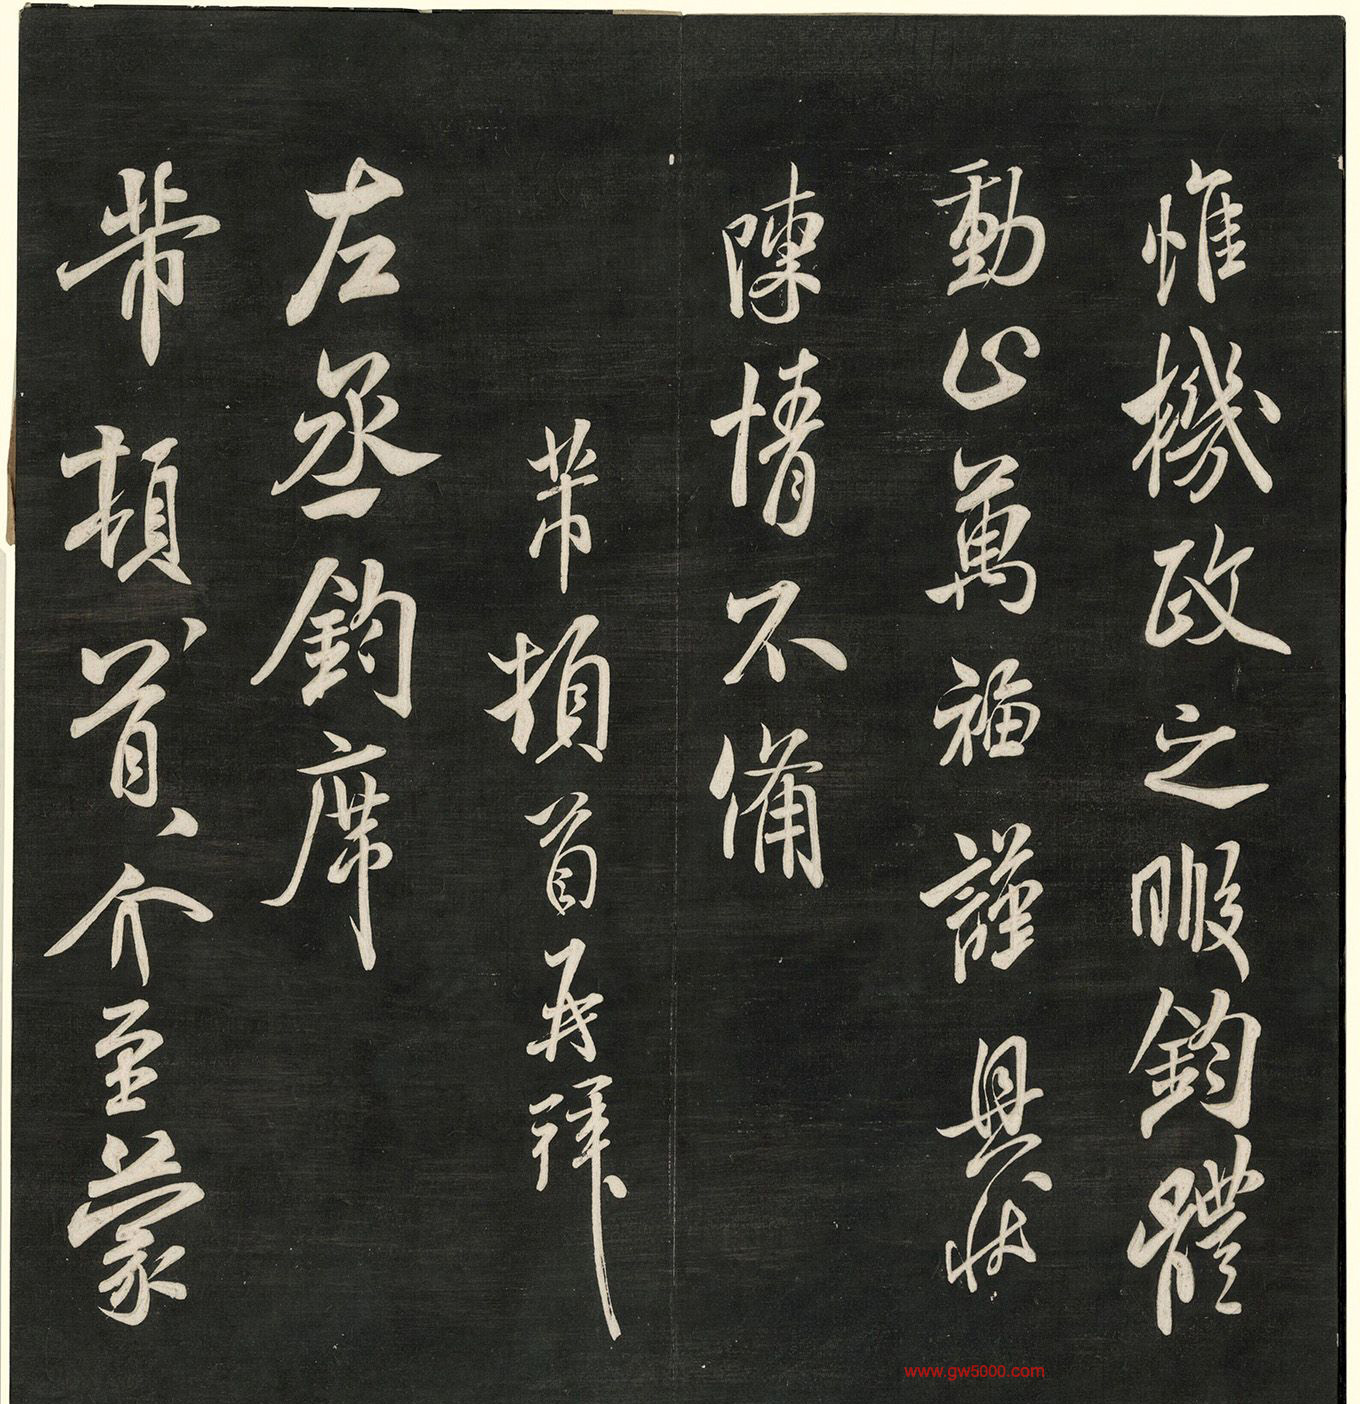 惟機政之暇鈞體
動止萬福謹具狀
陳情不備
芾頓首再拜
左丞鈞席
芾頓首頓首介至蒙
www.gw5000.com